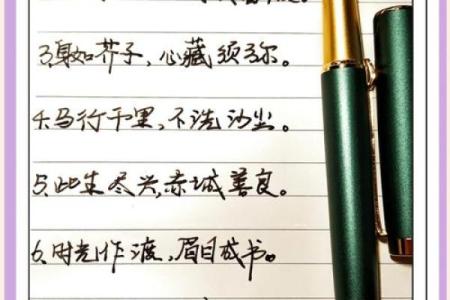 3.身如芥子，心藏须弥。
4.马行千里，不洗沙尘。
5.此生尽兴，赤诚善良。
6.时光作渡，眉目成书。